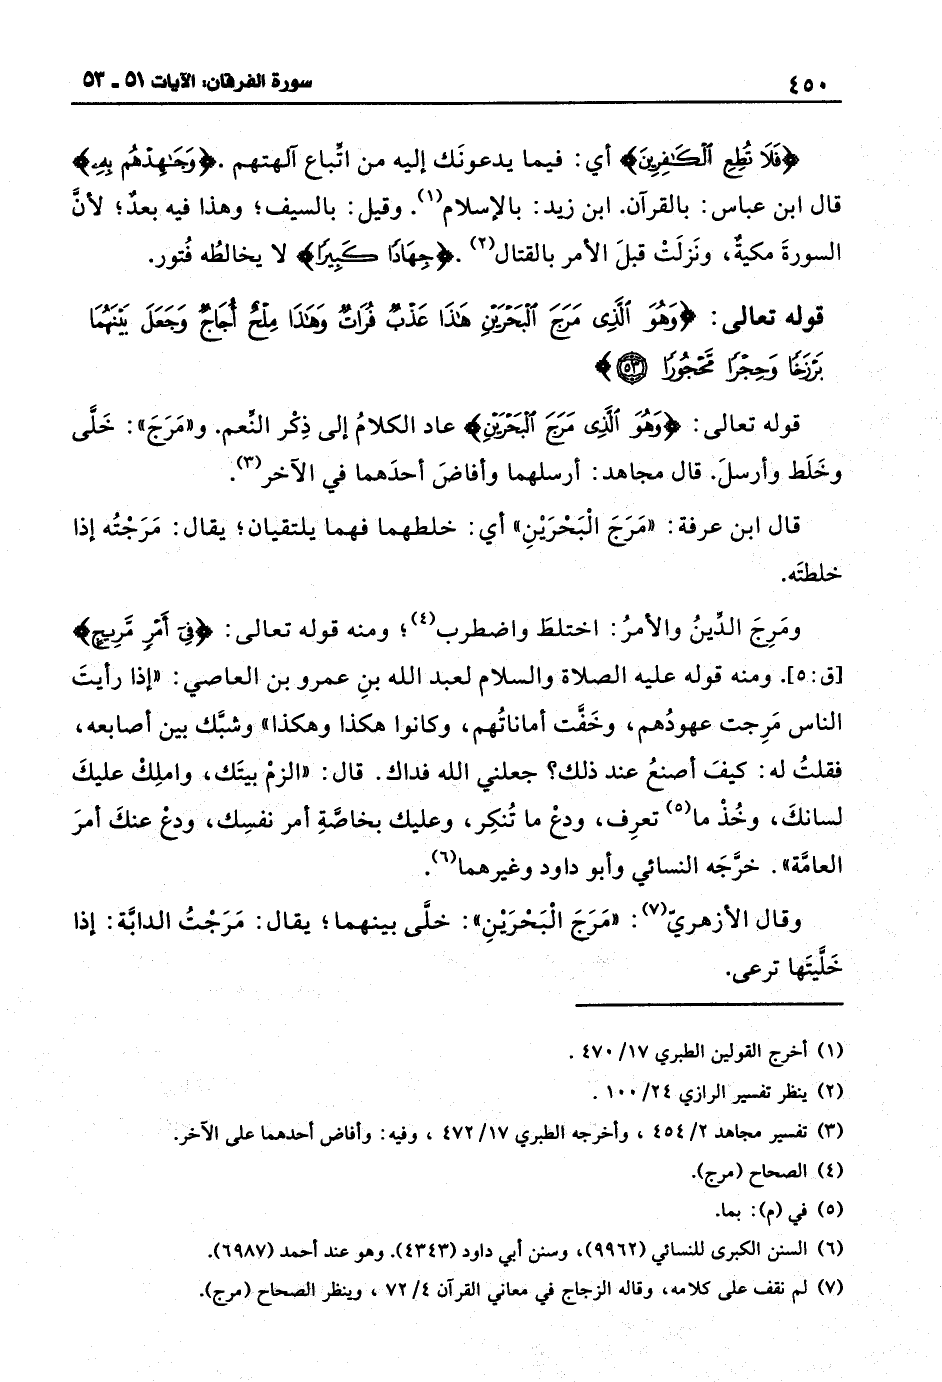 ٤٥٠ سورة الفرقان: الآيات ٥١ ـ ٥٣
﴿فَلَا تُطِعِ ٱلْكَٰفِرِينَ﴾ أي: فيما يدعونَك إليه من اتِّباع آلهتهم. ﴿وَجَٰهِدْهُم بِهِۦ﴾
قال ابن عباس: بالقرآن. ابن زيد: بالإسلام(١). وقيل: بالسيف؛ وهذا فيه بعدٌ؛ لأنَّ
السورةَ مكيةٌ، ونَزلَتْ قبلَ الأمر بالقتال(٢). ﴿جِهَادًا كَبِيرًا﴾ لا يخالطُه فُتور.
قوله تعالى: ﴿وَهُوَ ٱلَّذِى مَرَجَ ٱلْبَحْرَيْنِ هَٰذَا عَذْبٌ فُرَاتٌ وَهَٰذَا مِلْحٌ أُجَاجٌ وَجَعَلَ بَيْنَهُمَا
بَرْزَخًا وَحِجْرًا مَّحْجُورًا ۝٥٣﴾
قوله تعالى: ﴿وَهُوَ ٱلَّذِى مَرَجَ ٱلْبَحْرَيْنِ﴾ عاد الكلامُ إلى ذِكْر النِّعم. و«مَرَجَ»: خَلَّى
وخَلَط وأرسلَ. قال مجاهد: أرسلهما وأفاضَ أحدَهما في الآخر(٣).
قال ابن عرفة: «مَرَجَ الْبَحْرَيْنِ» أي: خلطهما فهما يلتقيان؛ يقال: مَرَجْتُه إذا
خلطتَه.
ومَرِجَ الدِّينُ والأمرُ: اختلطَ واضطرب(٤)؛ ومنه قوله تعالى: ﴿فِىٓ أَمْرٍ مَّرِيجٍ﴾
[ق:٥]. ومنه قوله عليه الصلاة والسلام لعبد الله بنِ عمرو بن العاصي: «إذا رأيتَ
الناس مَرِجت عهودُهم، وخَفَّت أماناتُهم، وكانوا هكذا وهكذا» وشبَّك بين أصابعه،
فقلتُ له: كيفَ أصنعُ عند ذلك؟ جعلني الله فداك. قال: «الزمْ بيتَك، واملِكْ عليكَ
لسانكَ، وخُذْ ما(٥) تعرِف، ودعْ ما تُنكِر، وعليك بخاصَّةِ أمر نفسِك، ودعْ عنكَ أمرَ
العامَّة». خرَّجَه النسائي وأبو داود وغيرهما(٦).
وقال الأزهريّ(٧): «مَرَجَ الْبَحْرَيْنِ»: خلَّى بينهما؛ يقال: مَرَجْتُ الدابَّة: إذا
خَلَّيتَها ترعى.
(١) أخرج القولين الطبري ١٧/ ٤٧٠ .
(٢) ينظر تفسير الرازي ٢٤/ ١٠٠ .
(٣) تفسير مجاهد ٢/ ٤٥٤ ، وأخرجه الطبري ١٧/ ٤٧٢ ، وفيه: وأفاض أحدهما على الآخر.
(٤) الصحاح (مرج).
(٥) في (م): بما.
(٦) السنن الكبرى للنسائي (٩٩٦٢)، وسنن أبي داود (٤٣٤٣). وهو عند أحمد (٦٩٨٧).
(٧) لم نقف على كلامه، وقاله الزجاج في معاني القرآن ٤/ ٧٢ ، وينظر الصحاح (مرج).